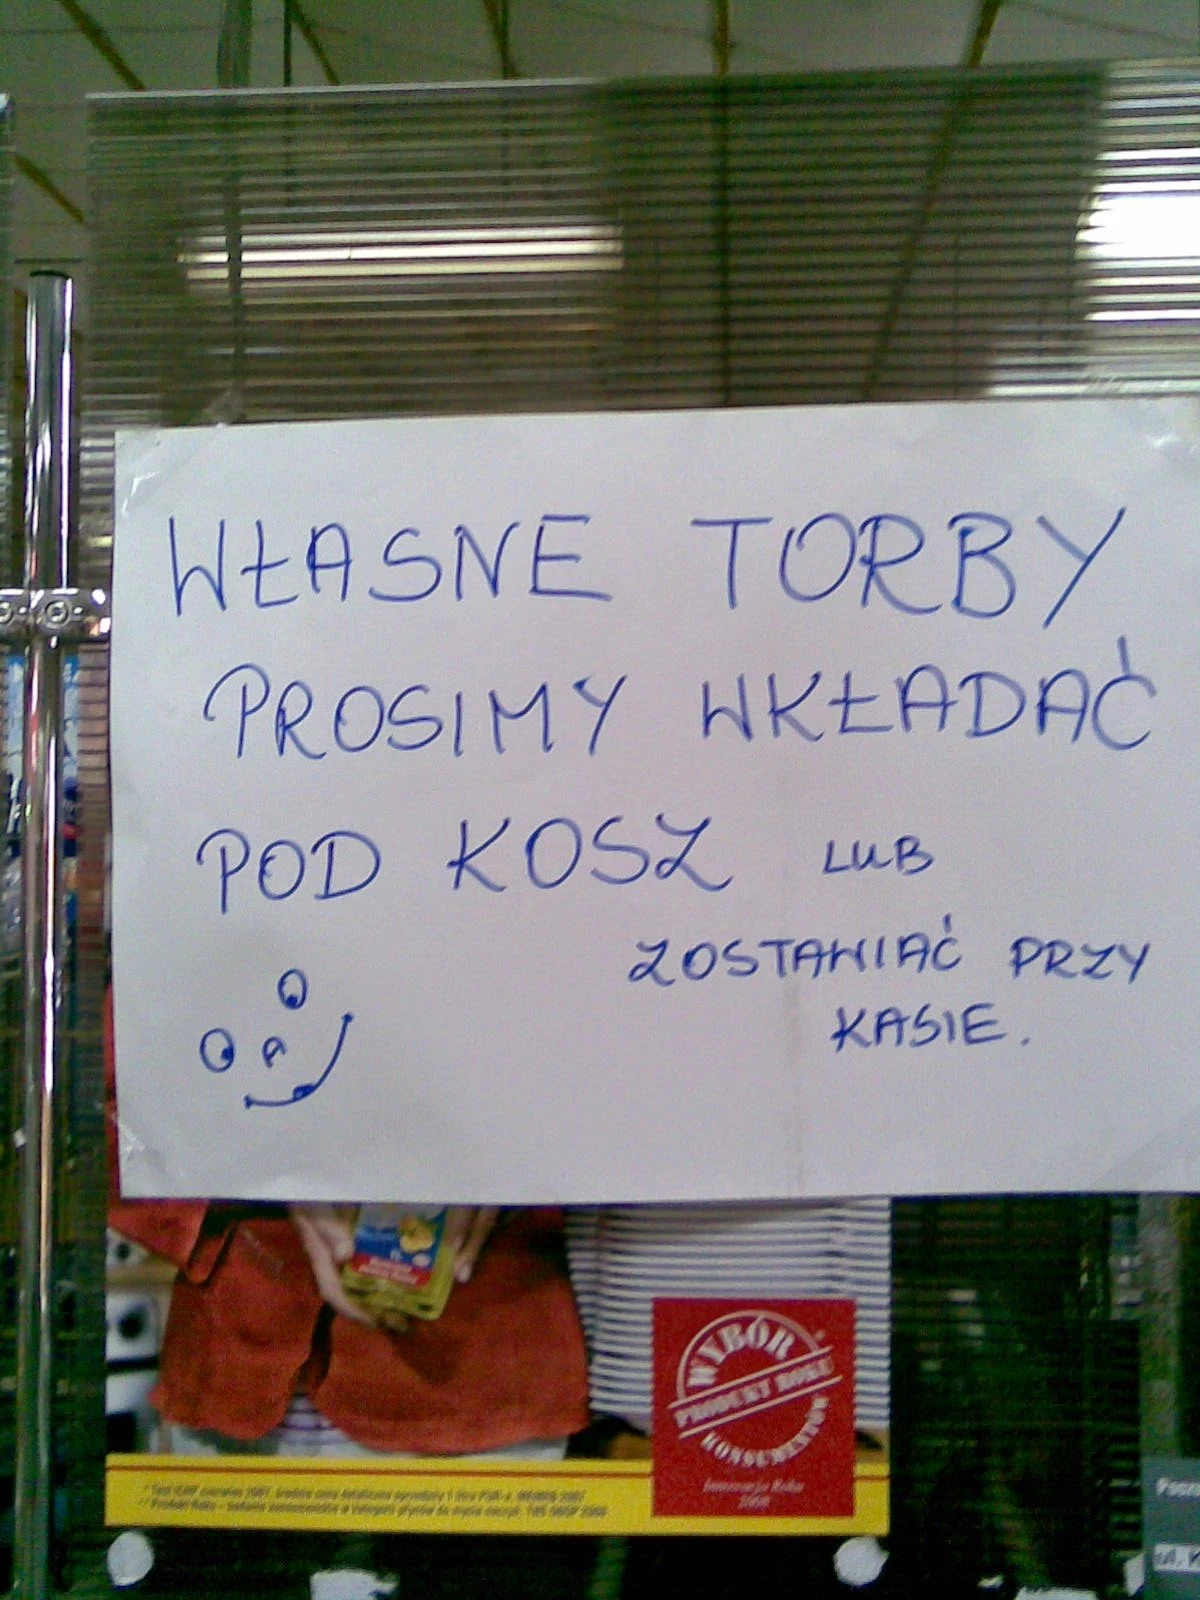 WŁASNE TORBY
PROSIMY WKŁADAĆ
POD KOSZ LUB
ZOSTAWIAĆ PRZY
KASIE.
WYBÓR
PRODUKT ROKU
KONSUMENTÓW
Innowacja Roku
2008